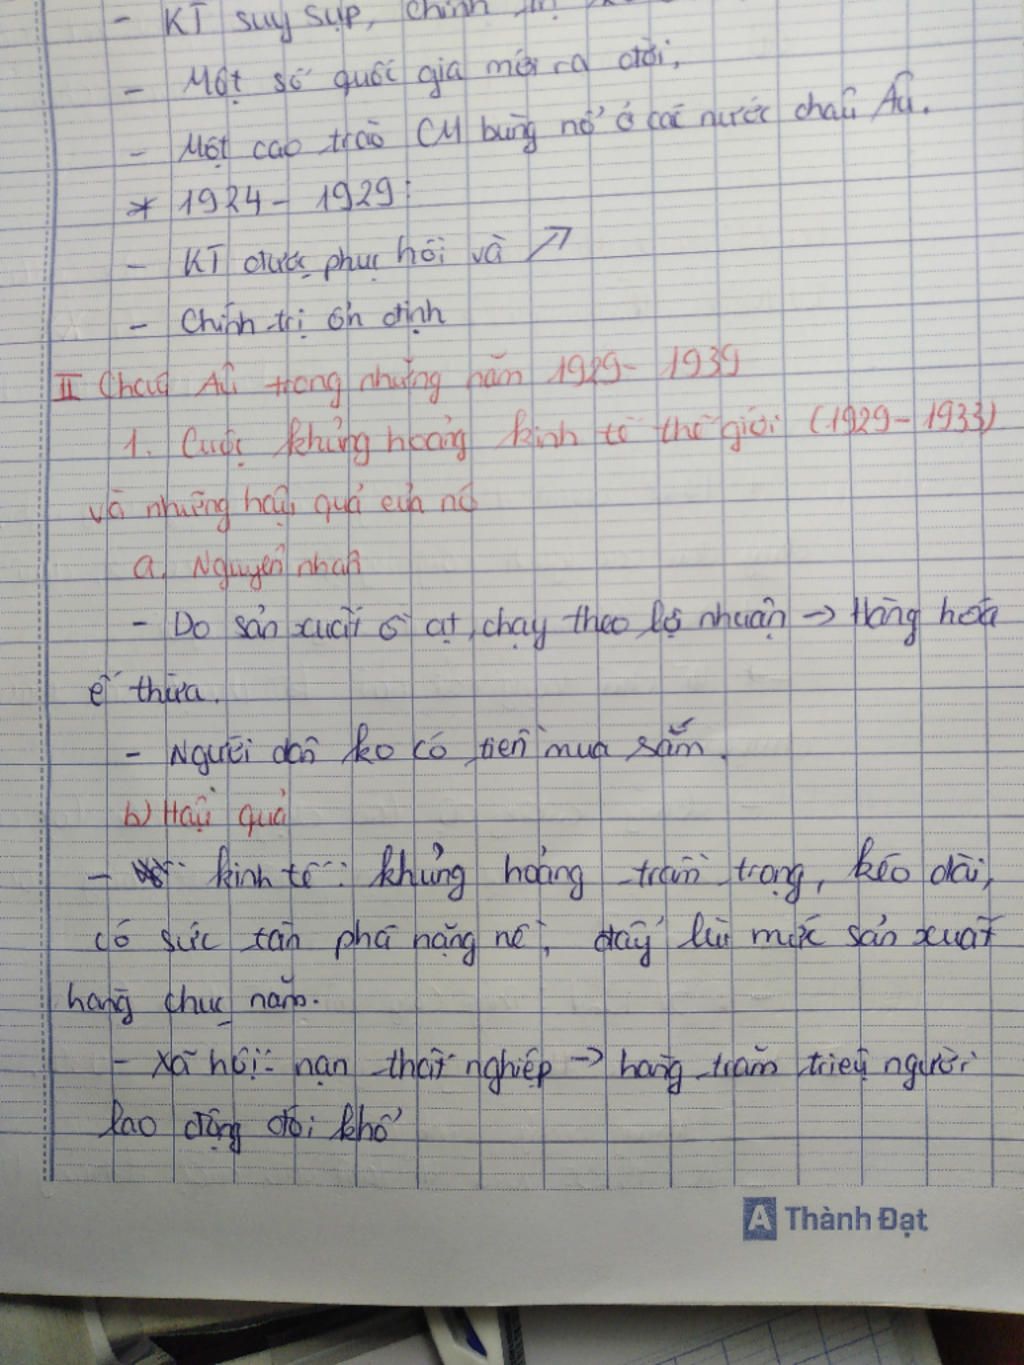 - KT suy sụp, chính trị
- Một số quốc gia mới ra đời,
- Một cao trào CM bùng nổ ở các nước châu Âu.
* 1924 - 1929:
- KT được phục hồi và ↗
- Chính trị ổn định
II Châu Âu trong những năm 1929 - 1939
1. Cuộc khủng hoảng kinh tế thế giới (1929 - 1933)
và những hậu quả của nó
a. Nguyên nhân
- Do sản xuất ồ ạt, chạy theo lợi nhuận → Hàng hóa
ế thừa.
- Người dân ko có tiền mua sắm.
b) Hậu quả
- kinh tế: khủng hoảng trầm trọng, kéo dài,
có sức tàn phá nặng nề, đẩy lùi mức sản xuất
hàng chục năm.
- Xã hội: nạn thất nghiệp → hàng trăm triệu người
lao động đói khổ
A Thành Đạt